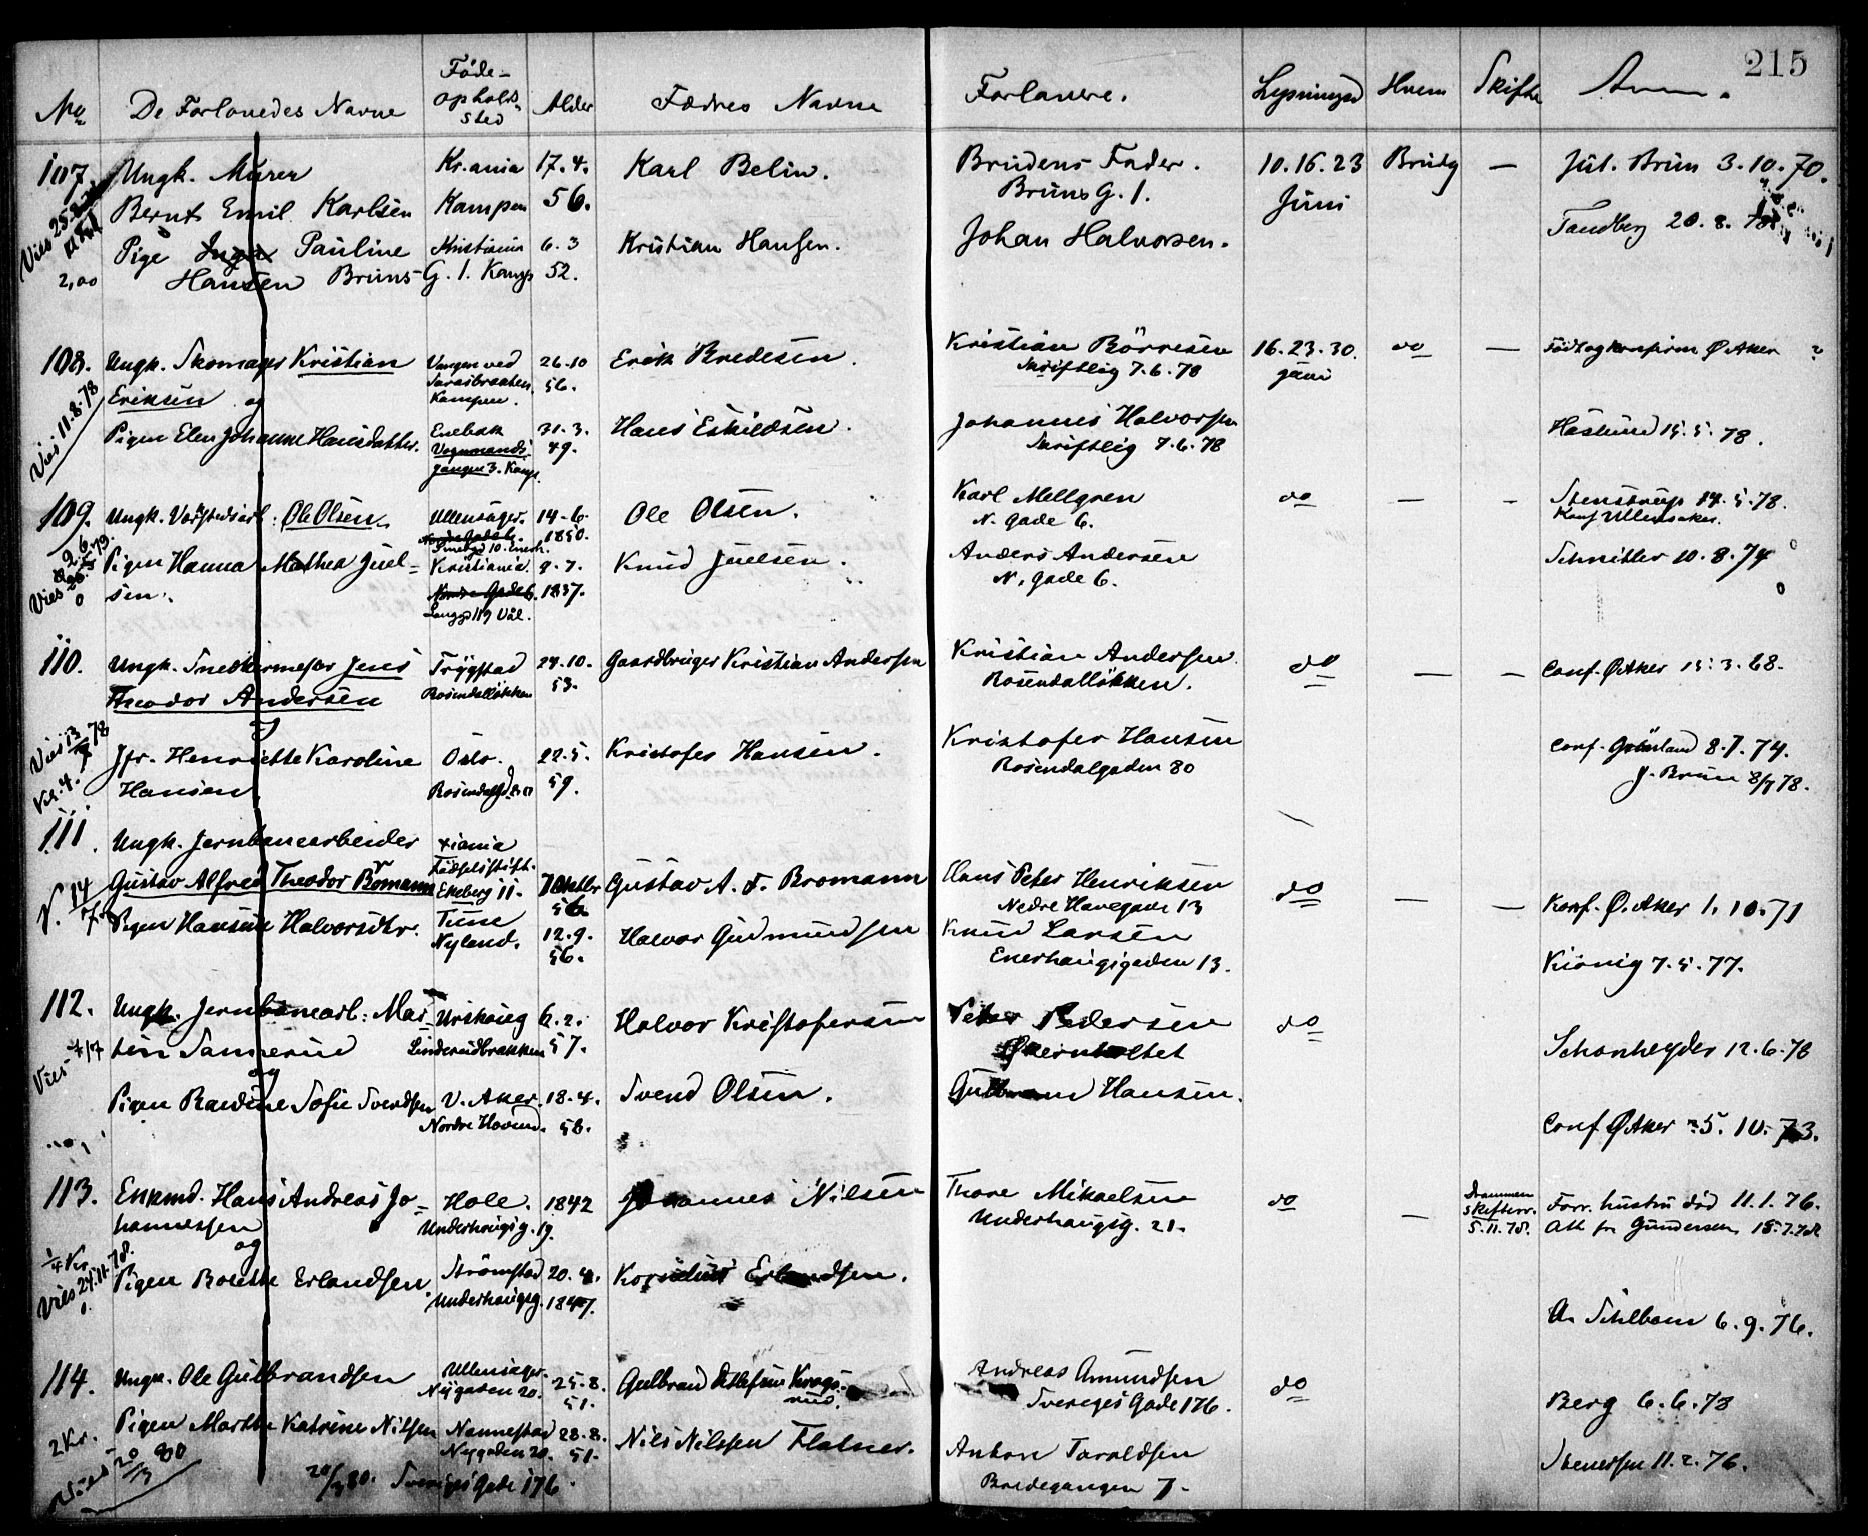 215
No De Forlovedes Navne Føde- opholds- sted Alder Fædres Navne Forlovere. Lysningsd Hvem Skifte Anm.
107. Ungk. Murer Kr.ania 17.4. Karl Belin. Brudens Fader. 10.16.23 Brudg — Jul. Bruun 3.10.70.
Bernt Emil Karlsen Kampen 56. Bruns G. 1. Juni
Pige Inga Pauline Kristiania 6.3 Kristian Hansen. Johan Halvorsen. Tandberg 20.8.
2,00 Hansen Bruns G. 1. Kamp 52.
108. Ungk. Skomager Kristian 26.10 Erik Bredesen. Kristian Börresen 16.23.30. do — Född og konfirm Ø. Aker
Eriksen og Kampen. 56. Skriftlig 7.6.78 juni
Vies 11.8.78
Pigen Elen Johanne Hansdatter. Enebak 31.3. Hans Eskildsen. Johannes Halvorsen Haslund 15.5.78.
Vognmandsgangen 3. Kamp. 49. Skriftlig 7.6.78
109. Ungk. Ole Olsen. Ullensager. 14-6. Ole Olsen. Karl Mellgren do — - Stenstrup 14.5.78.
1850. N. Gade 6. Konf Ullensaker.
Pigen Hanna Mathea Juel- Kristiania 9.7. Knud Juelsen. Anders Andersen Schnitler 10.8.74
sen. Nordre Gade 6. 1837. N. Gade 6.
Langg 119 Vål.
110. Ungk. Snedkermester Jens Trygstad 24.10. Gaardbruger Kristian Andersen Kristian Andersen. do — — Conf. Ø. Aker 15.3.68.
Theodor Andersen Rosendalløkken 53. Rosendalløkken.
og
Jfr. Henriette Karoline Oslo. 22.5. Kristofer Hansen. Kristofer Hansen Conf. Grönland 8.7.74.
Hansen. 59. Rosendalgaden 80 J. Bruun 8/7 78.
111. Ungk. Jernbanearbeider xiania
Gustav Alfred Theodor Bromann Fødselsstift. Ekeberg 11. 7 Oktbr 56 Gustav A. F. Bromann Hans Peter Henriksen do — — Konf. Ø. Aker 1.10.71
V. 14/7. Nedre Havegade 13
Pigen Hansine Halvorsdtr. Tune Nyland. 12.9. 56. Halvor Gudmundsen Knud Larsen
Enerhaugsgaden 13. Kiönig 7.5.77.
112. Ungk. Jernbanearb: Mar- Urskoug 6.2. Halvor Kristofersen Peter Pedersen do
tin Sannerud Linderudbakken 57. Schonheyder 12.6.78
og
Pigen Bardine Sofie Svendsen V. Aker. 18.4. Svend Olsen. Gulbrand Hansen.
56. Conf Ø. Aker 5.10.73.
113. Enkmd. Hans Andreas Jo- Hole. 1842 Johannes Nilsen Thore Mikaelsen do — Drammen skifterr. 5.11.78. Forr. hustru död 11.1.76.
hannessen Underhaugsg. 19. Underhaugsg. 21. Att fr Gundersen 15.7.78
og
1/4 Kr.
Vies 24.11.78.
Pigen Borethe Erlandsen. Strömstad 20.4. Erlandsen.
Underhaugsg. 1847.
6.9.76.
114. Ungk. Ole Gulbrandsen Ullensager. 25.8. Gulbrand Andreas Amundsen do Berg 6.6.73
Nygaden 20. 51. Sveriges Gade 176.
2 Kr. Pigen Marthe Katrine Nilsen Nannestad 28.8. Nils Nilssen Flatner. Anton Taraldsen Stenersen 11.2.76.
Nygaden 20. 51. Bredegangen 7.
20/3 80. Sveriges Gade 176.